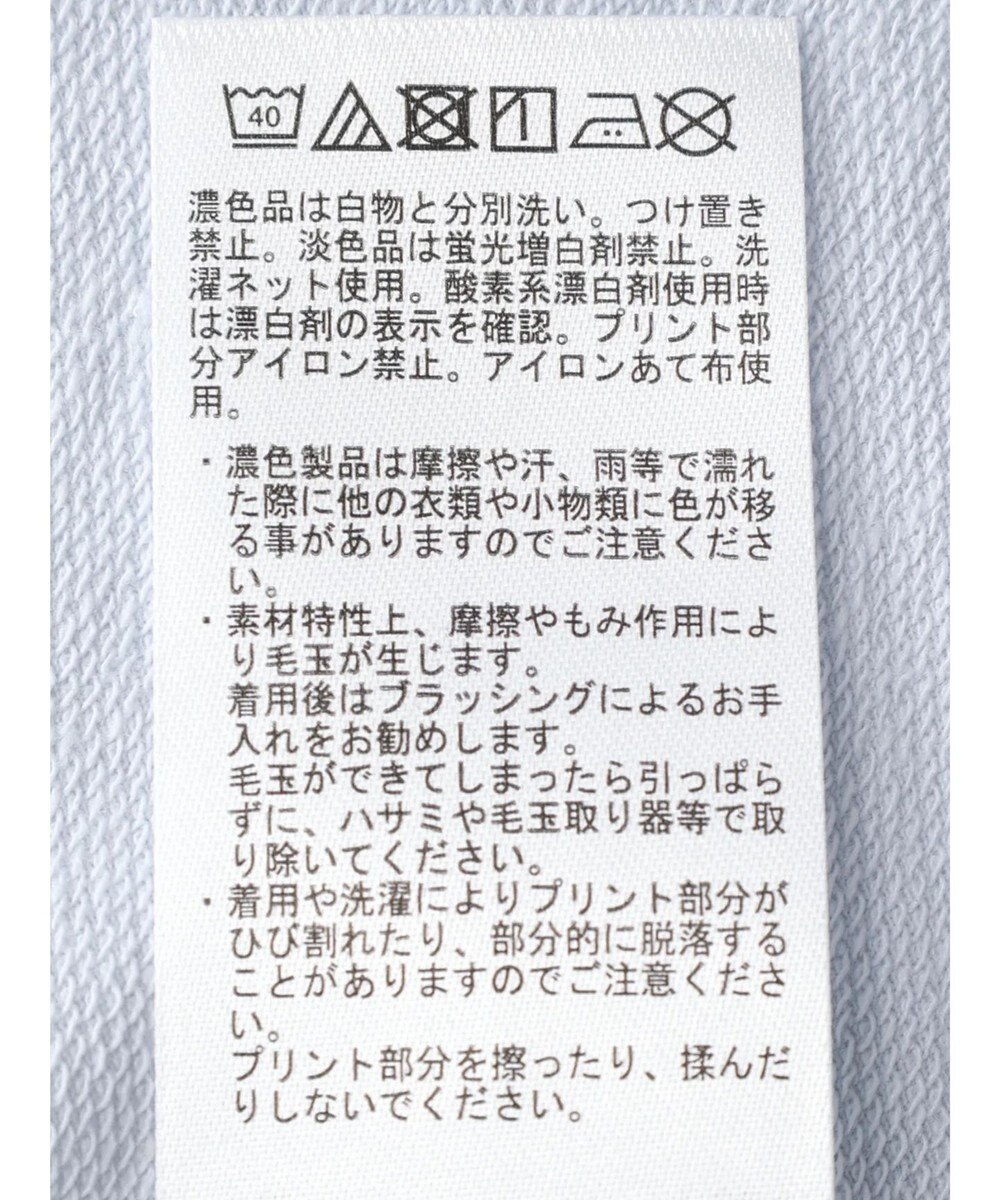 40
濃色品は白物と分別洗い。つけ置き
禁止。淡色品は蛍光増白剤禁止。洗
濯ネット使用。酸素系漂白剤使用時
は漂白剤の表示を確認。プリント部
分アイロン禁止。アイロンあて布使
用。
・濃色製品は摩擦や汗、雨等で濡れ
た際に他の衣類や小物類に色が移
る事がありますのでご注意くださ
い。
・素材特性上、摩擦やもみ作用によ
り毛玉が生じます。
着用後はブラッシングによるお手
入れをお勧めします。
毛玉ができてしまったら引っぱら
ずに、ハサミや毛玉取り器等で取
り除いてください。
・着用や洗濯によりプリント部分が
ひび割れたり、部分的に脱落する
ことがありますのでご注意くださ
い。
プリント部分を擦ったり、揉んだ
りしないでください。